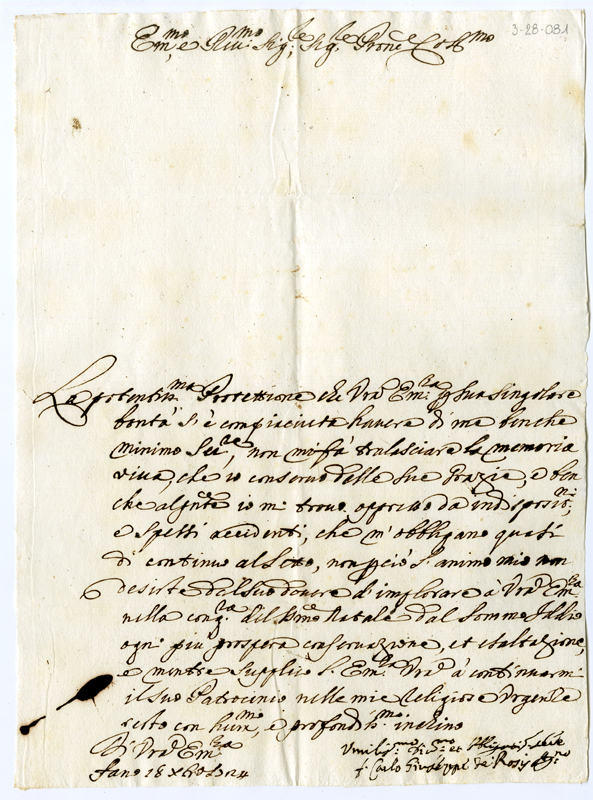 3-28-081
Em.mo e Rev.mo Sig.re Sig.re Prone Col.mo
La potentis.ma Protettione che Vra Em.za p sua singolare
bontà s'è compiaciuta havere di me benche
minimo Ser.re, non mi fà tralasciare la memoria
viva, che io conservo delle sue Grazie, e ben
che al pnte io mi trovo oppresso da indisposit.ni,
e spessi accidenti, che m'obbligano quasi
di continuo al letto, non pciò l'animo mio non
desiste dal suo dovere d'implorare à Vra Em.za
nella cong.ra del SSmo Natale dal Sommo Iddio
ogni più prospera conservazione, et esaltazione,
e mentre supplico l'Em.za Vra à continuarmi
il suo Patrocinio nelle mie religiose Urgenze
resto con hum.mo, e profondis.mo inchino
Di Vra Em.za
Fano 18 Xbre
Umilis.mo Di.mo et
f. Carlo Giuseppe de Rossi